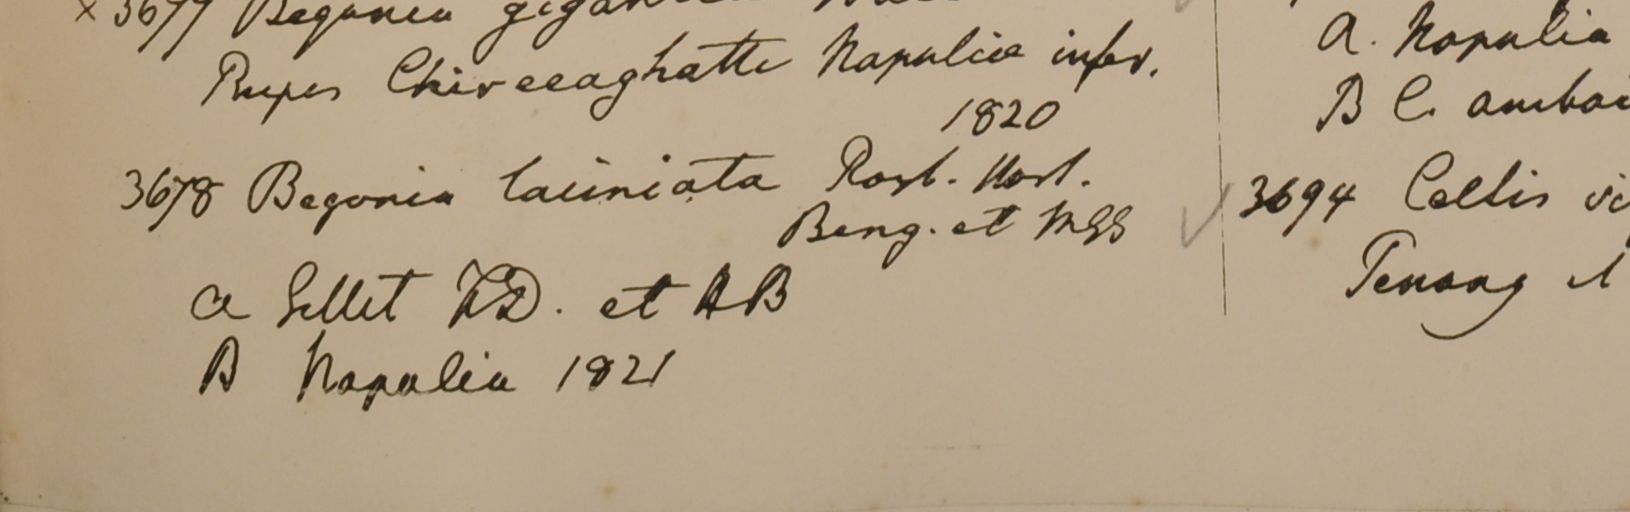 × 3677 Begonia gigantea Wall
Rupes Chireeaghatte Napalia infer.
1820
3678 Begonia laciniata Roxb. Hort.
Beng. et MSS
a Sillet FD. et HB
B Napalia 1821
a. Napalia
B C. ambo
3694 Celtis
Penang